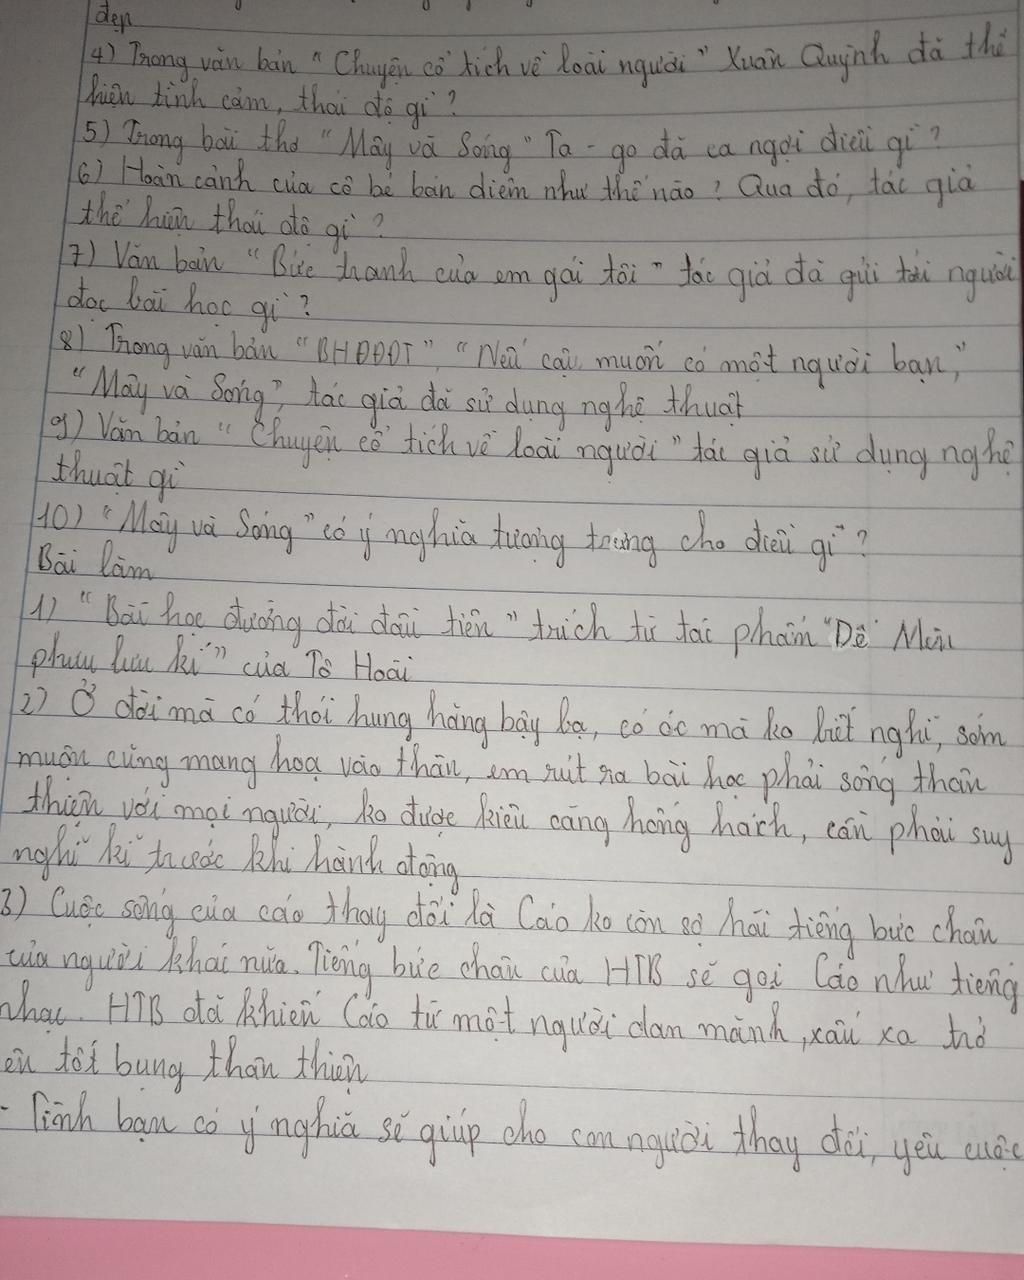 đẹp
4) Trong văn bản "Chuyện cổ tích về loài người" Xuân Quỳnh đã thể
hiện tình cảm, thái độ gì?
5) Trong bài thơ "Mây và Sóng" Ta-go đã ca ngợi điều gì?
6) Hoàn cảnh của cô bé bán diêm như thế nào? Qua đó, tác giả
thể hiện thái độ gì?
7) Văn bản "Bức tranh của em gái tôi" tác giả đã gửi tới người
đọc bài học gì?
8) Trong văn bản "BHĐĐĐT", "Nếu cậu muốn có một người bạn,"
"Mây và Sóng", tác giả đã sử dụng nghệ thuật
9) Văn bản "Chuyện cổ tích về loài người" tác giả sử dụng nghệ
thuật gì
10) "Mây và Sóng" có ý nghĩa tượng trưng cho điều gì?
Bài làm
1) "Bài học đường đời đầu tiên" trích từ tác phẩm "Dế Mèn
phưu lưu kí" của Tô Hoài
2) Ở đời mà có thói hung hăng bậy bạ, có óc mà ko biết nghĩ, sớm
muộn cũng mang hoạ vào thân, em rút ra bài học phải sống thân
thiện với mọi người, ko được kiêu căng hống hách, cần phải suy
nghĩ kĩ trước khi hành động
3) Cuộc sống của cáo thay đổi là Cáo ko còn sợ hãi tiếng bước chân
của người khác nữa. Tiếng bước chân của HTB sẽ gọi Cáo như tiếng
nhạc. HTB đã khiến Cáo từ một người dan mảnh, xấu xa trở
ên tốt bụng thân thiện
- Tình bạn có ý nghĩa sẽ giúp cho con người thay đổi, yêu cuộc